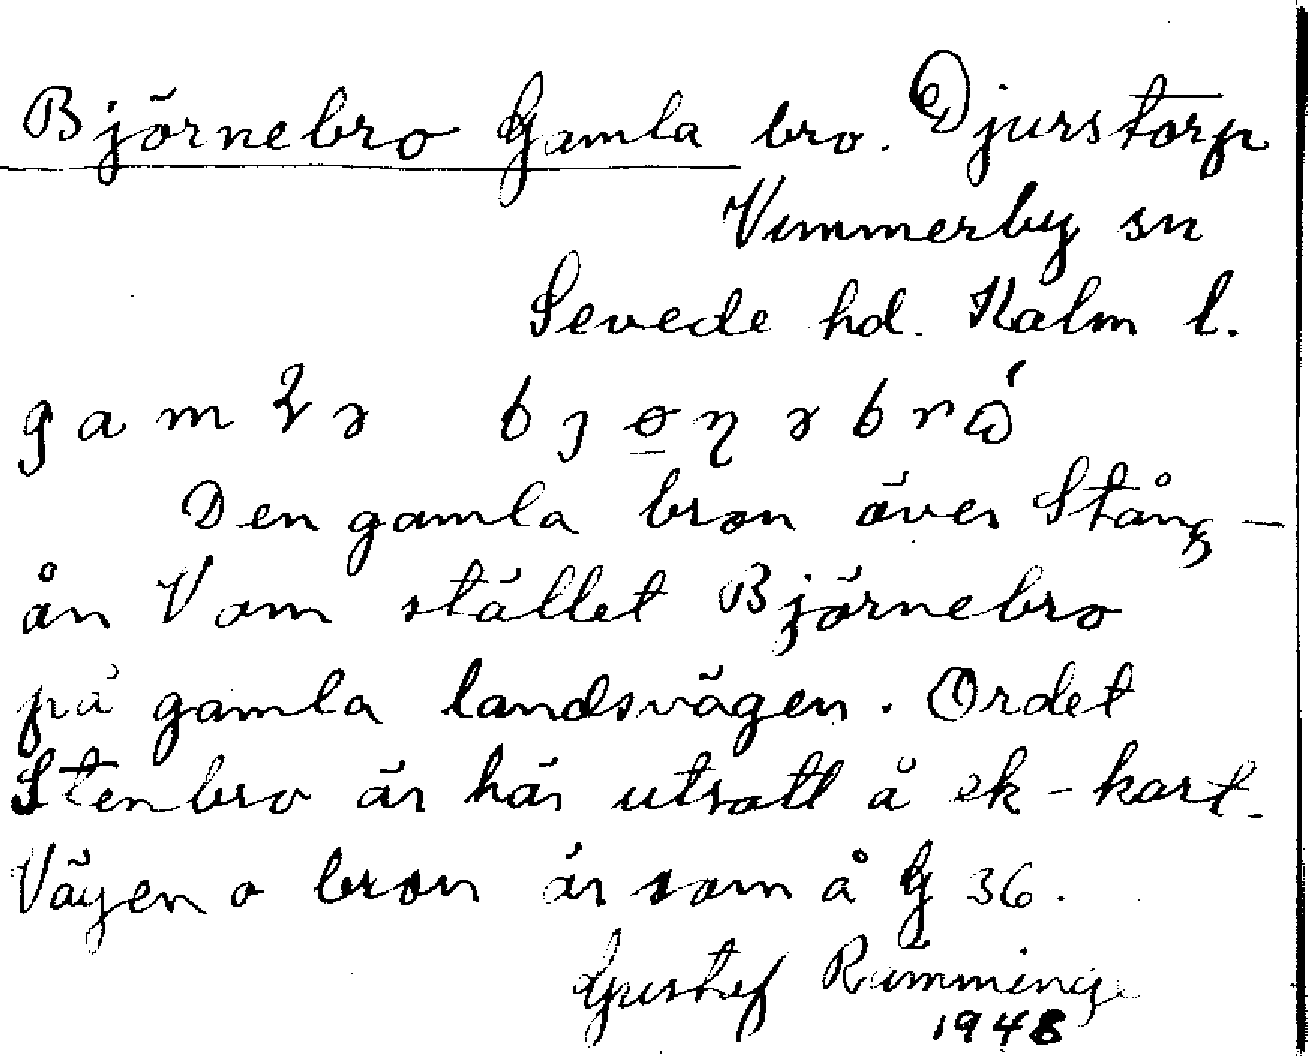 Björnebro Gamla bro. Djurstorp
Vimmerby sn
Sevede hd. Kalm l.
Den gamla bron över Stång-
ån V om stället Björnebro
på gamla landsvägen. Ordet
Stenbro är här utsatt å ek-kart.
Vägen o bron är som å G 36.
Gustef Rümminge
1948